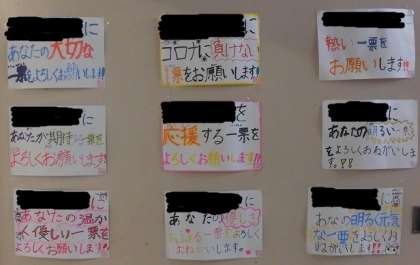 に
あなたの大切な
一票をよろしくお願いします!!
に
コロナに負けない
一票をお願いします!!
に
熱い一票を
お願いします!!
に
あなたが期待する一票を
よろしくお願いします!!
を
応援する一票を
よろしくお願いします!!
に
あなたの明るい
をよろしくおねがいしま
す。!!
に
あなたの温か
く優しい一票を
よろしくお願いします!!
に
あなたの
一票をよろしく
おねがいします。
に
あなたの明るく元気
な一票をよろしくお
ねがいします!!